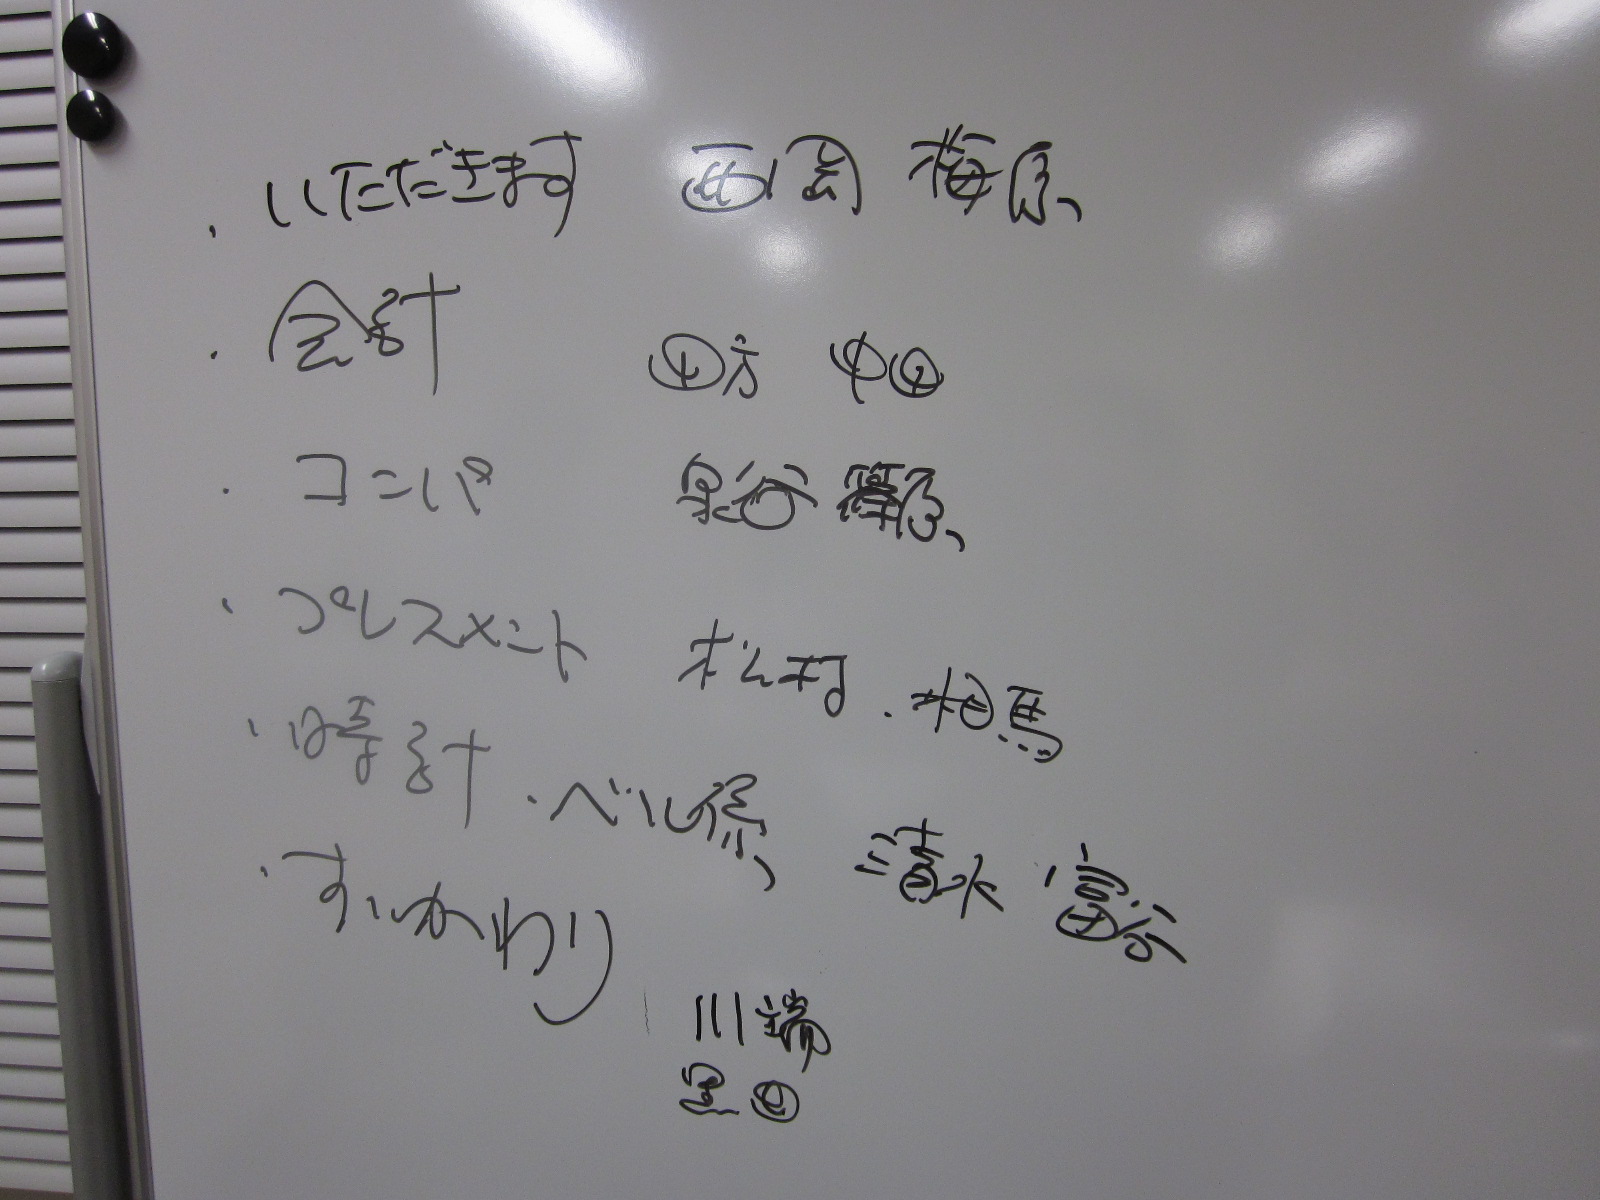 ・いただきます 西岡 梅原
・会計 四方 中田
・コンパ 泉谷 篠原
・プレスメント 松村・相馬
・時計・ベル係 清水・富谷
・すいかわり
川端